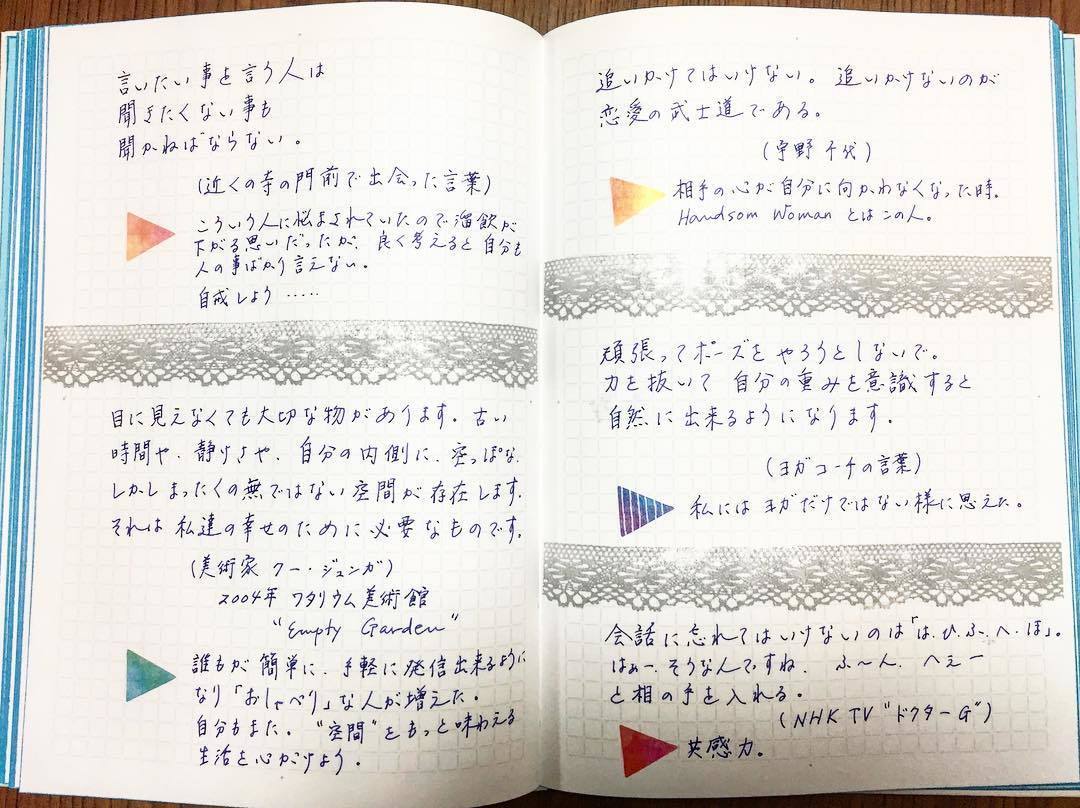 言いたい事を言う人は
聞きたくない事も
聞かねばならない。
(近くの寺の門前で出会った言葉)
こういう人に悩まされていたので溜飲が
下がる思いだったが、良く考えると自分も
人の事ばかり言えない。
自戒しよう……
目に見えなくても大切な物があります。古い
時間や、静けさや、自分の内側に、空っぽな、
しかしまったくの無ではない空間が存在します。
それは私達の幸せのために必要なものです。
(美術家 クー・ジュンガ)
2004年 ワタリウム美術館
"Empty Garden"
誰もが簡単に、手軽に発信出来るように
なり「おしゃべり」な人が増えた。
自分もまた。"空間"をもっと味わえる
生活を心がけよう。
追いかけてはいけない。追いかけないのが
恋愛の武士道である。
(宇野千代)
相手の心が自分に向かわなくなった時。
Handsom Woman とはこの人。
頑張ってポーズをやろうとしないで。
力を抜いて 自分の重みを意識すると
自然に出来るようになります。
(ヨガコーチの言葉)
私にはヨガだけではない様に思えた。
会話に忘れてはいけないのは「は、ひ、ふ、へ、ほ」。
はぁー、そうなんですね、ふ〜ん、へぇー
と相の手を入れる。
(NHK TV "ドクターG")
共感力。